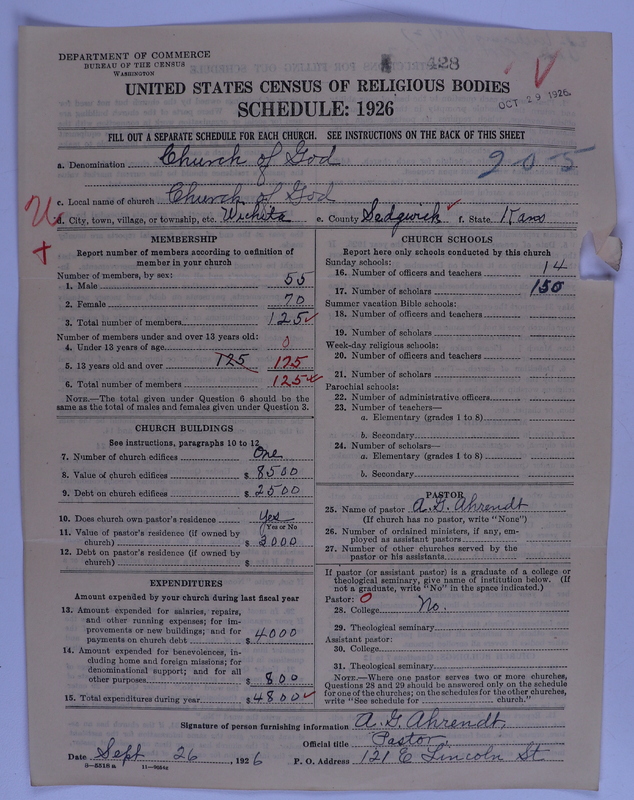 DEPARTMENT OF COMMERCE
BUREAU OF THE CENSUS
WASHINGTON
428
UNITED STATES CENSUS OF RELIGIOUS BODIES
OCT 29 1926
SCHEDULE: 1926
FILL OUT A SEPARATE SCHEDULE FOR EACH CHURCH. SEE INSTRUCTIONS ON THE BACK OF THIS SHEET
a. Denomination Church of God
9-0-5
c. Local name of church Church of God
d. City, town, village, or township, etc. Wichita e. County Sedgwick f. State Kans
MEMBERSHIP
Report number of members according to definition of
member in your church
Number of members, by sex:
1. Male 55
2. Female 70
3. Total number of members 125
Number of members under and over 13 years old:
4. Under 13 years of age 0
5. 13 years old and over 125 125
6. Total number of members 125
NOTE.—The total given under Question 6 should be
same as the total of males and females given under Question 3.
CHURCH BUILDINGS
See instructions, paragraphs 10 to 12
7. Number of church edifices One
8. Value of church edifices $ 8500
9. Debt on church edifices $ 2500
10. Does church own pastor's residence Yes
(Yes or No)
11. Value of pastor's residence (if owned by
church) $ 3000
12. Debt on pastor's residence (if owned by
church) $
EXPENDITURES
Amount expended by your church during last fiscal year
13. Amount expended for salaries, repairs,
and other running expenses; for im-
provements or new buildings; and for
payments on church debt $ 4000
14. Amount expended for benevolences, in-
cluding home and foreign missions; for
denominational support; and for all
other purposes $ 800
15. Total expenditures during year $ 4800
CHURCH SCHOOLS
Report here only schools conducted by this church
Sunday schools:
16. Number of officers and teachers 14
17. Number of scholars 150
Summer vacation Bible schools:
18. Number of officers and teachers
19. Number of scholars
Week-day religious schools:
20. Number of officers and teachers
21. Number of scholars
Parochial schools:
22. Number of administrative officers
23. Number of teachers—
a. Elementary (grades 1 to 8)
b. Secondary
24. Number of scholars—
a. Elementary (grades 1 to 8)
b. Secondary
PASTOR
25. Name of pastor A. G. Ahrendt
(If church has no pastor, write "None")
26. Number of ordained ministers, if any, em-
ployed as assistant pastors
27. Number of other churches served by the
pastor or his assistants
If pastor (or assistant pastor) is a graduate of a college or
theological seminary, give name of institution below. (If
not a graduate, write "No" in the space indicated.)
Pastor: 0
28. College No.
29. Theological seminary
Assistant pastor:
30. College
31. Theological seminary
NOTE.—Where one pastor serves two or more churches,
Questions 28 and 29 should be answered only on the schedule
for one of the churches; on the schedules for the other churches,
write "See schedule for church."
Signature of person furnishing information A. G. Ahrendt,
Official title Pastor
Date Sept 26, 1926 P. O. Address 121 E Lincoln St.
8—5518a 11—9054c